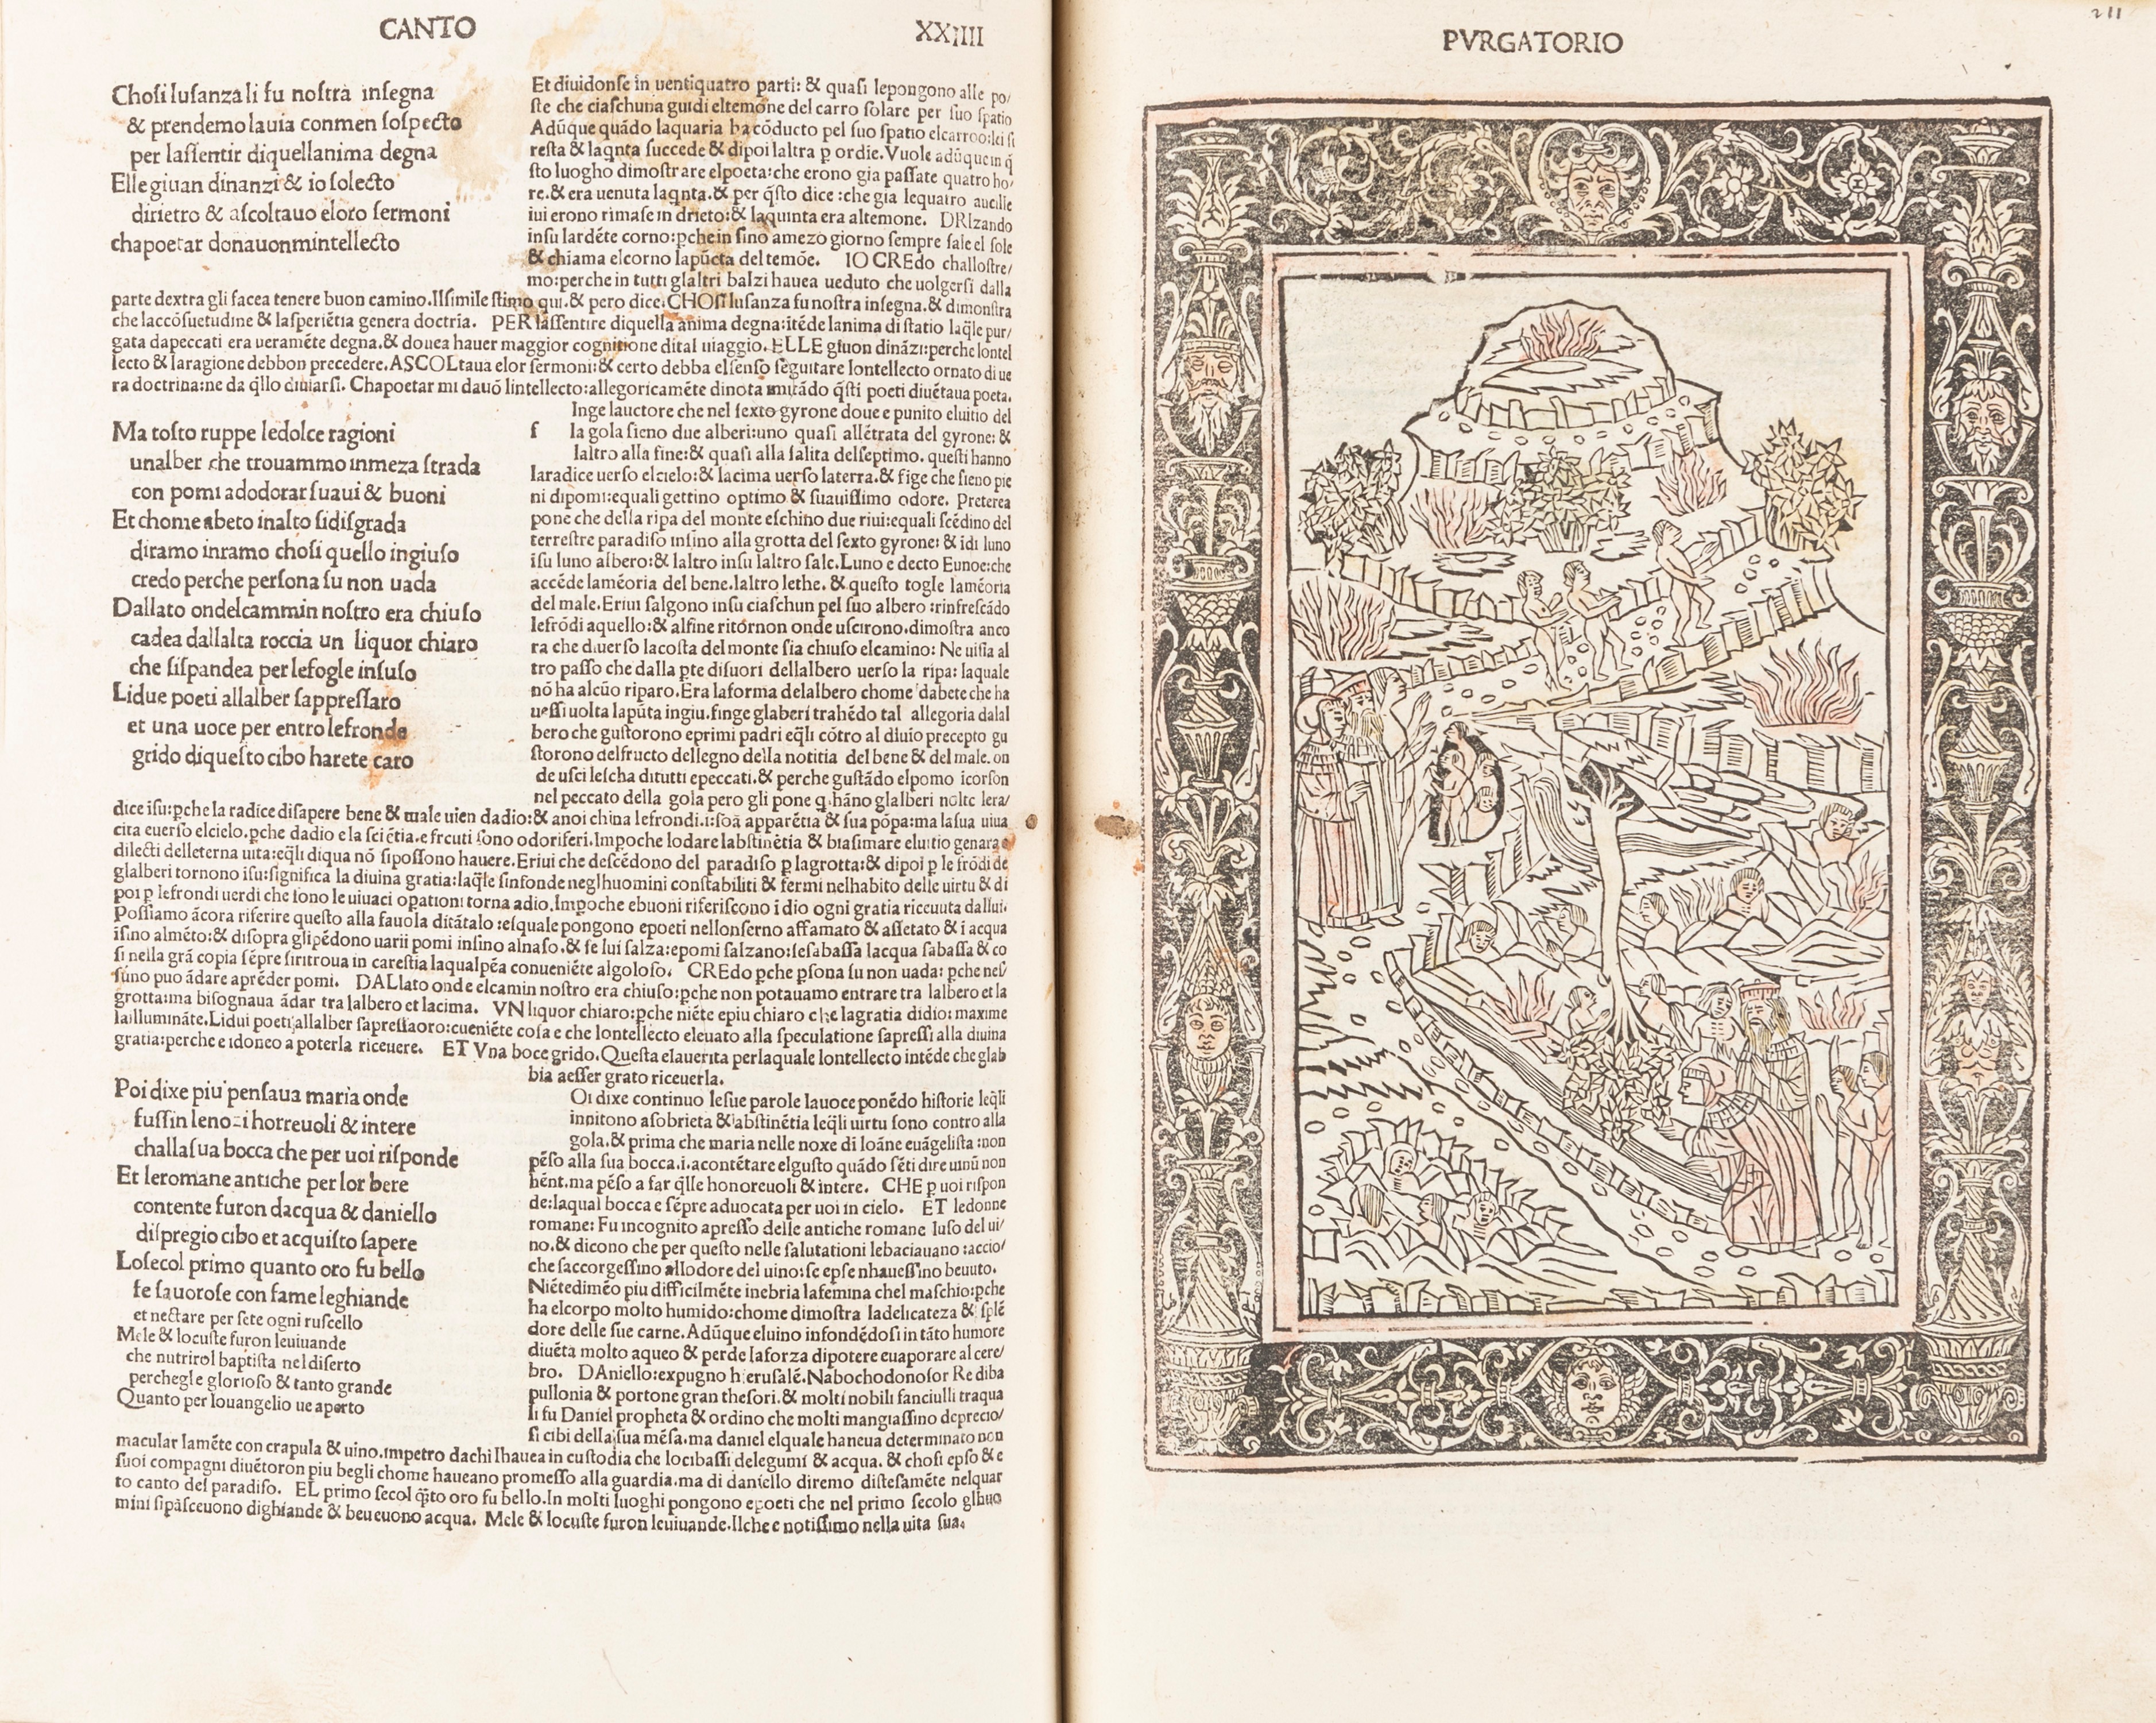 CANTO
XXIIII
Chosi lusanza li fu nostra insegna
& prendemo lauia conmen sospecto
per lassentir diquellanima degna
Elle giuan dinanzi & io solecto
dirietro & ascoltauo eloro sermoni
chapoetar donauonmintellecto
Et diuidonse in uentiquatro parti: & quasi lepongono alle po/
ste che ciaschuna guidi eltemone del carro solare per suo spatio
Adũque quãdo laquaria ha cõducto pel suo spatio elcarro:lei si
resta & laqnta succede & dipoi laltra p ordie. Vuole adũque in q̃
sto luogho dimostrare elpoeta:che erono gia passate quatro ho/
re.& era uenuta laqnta.& per q̃sto dice :che gia lequatro ancille
iui erono rimase in drieto:& laquinta era altemone. DRIzando
insu lardẽte corno:pchein sino amezo giorno sempre sale el sole
& chiama elcorno lapũcta del temõe. IO CREdo challostre/
mo:perche in tutti glaltri balzi hauea ueduto che uolgersi dalla
parte dextra gli facea tenere buon camino.Ilsimile stimo qui.& pero dice:CHOSI lusanza fu nostra insegna.& dimonstra
che laccõsuetudine & lasperiẽtia genera doctria. PER lassentire diquella anima degna:itẽde lanima di statio laq̃le pur/
gata dapeccati era ueramẽte degna.& douea hauer maggior cognitione dital uiaggio. ELLE giuon dinãzi:perche lontel
lecto & laragione debbon precedere.ASCOLtaua elor sermoni:& certo debba elsenso seguitare lontellecto ornato di ue
ra doctrina:ne da q̃llo diuiarsi. Chapoetar mi dauõ lintellecto:allegoricamẽte dinota imitãdo q̃sti poeti diuẽtaua poeta.
Ma tosto ruppe ledolce ragioni
unalber che trouammo inmeza strada
con pomi adodorar suaui & buoni
Et chome abeto inalto sidisgrada
diramo inramo chosi quello ingiuso
credo perche persona su non uada
Dallato ondelcammin nostro era chiuso
cadea dallalta roccia un liquor chiaro
che sispandea per lefogle insuso
Lidue poeti allalber sappressaro
et una uoce per entro lefronde
grido diquesto cibo harete caro
Inge lauctore che nel sexto gyrone doue e punito eluitio del
f la gola sieno due alberi:uno quasi allẽtrata del gyrone: &
laltro alla fine:& quasi alla salita delseptimo. questi hanno
laradice uerso elcielo:& lacima uerso laterra.& fige che sieno pie
ni dipomi:equali gettino optimo & suauissimo odore. Preterea
pone che della ripa del monte eschino due riui:equali scẽdino del
terrestre paradiso insino alla grotta del sexto gyrone: & idi luno
ĩsu luno albero:& laltro insu laltro sale.Luno e decto Eunoe:che
accẽde lamẽoria del bene.laltro lethe. & questo togle lamẽoria
del male.Eriui salgono insu ciaschun pel suo albero :rinfrescãdo
lefrõdi aquello:& alfine ritornon onde uscirono.dimostra anco
ra che diuerso lacosta del monte sia chiuso elcamino: Ne uisia al
tro passo che dalla pte disuori dellalbero uerso la ripa: laquale
nõ ha alcũo riparo.Era laforma delalbero chome dabete che ha
uessi uolta lapũta ingiu.finge glaberi trahẽdo tal allegoria dalal
bero che gustorono eprimi padri eq̃li cõtro al diuio precepto gu
storono delfructo dellegno della notitia del bene & del male.on
de usci lescha ditutti epeccati.& perche gustãdo elpomo icorson
nel peccato della gola pero gli pone q.hãno glalberi uolte lera/
dice ĩsu:pche la radice disapere bene & male uien dadio:& anoi china lefrondi.i:soã apparẽtia & sua põpa:ma lasua uiua
cita euerso elcielo.pche dadio e la sciẽtia.e frcuti sono odoriferi.Impoche lodare labstinẽtia & biasimare eluitio genara e
dilecti delleterna uita:eq̃li diqua nõ sipossono hauere.Eriui che descẽdono del paradiso p lagrotta:& dipoi p le frõdi de
glalberi tornono ĩsu:significa la diuina gratia:laq̃le sinfonde neglhuomini constabiliti & fermi nelhabito delle uirtu & di
poi p lefrondi uerdi che sono le uiuaci opationi torna adio.Impoche ebuoni riferiscono ĩ dio ogni gratia riceuuta dallui.
Possiamo ãcora riferire questo alla fauola ditãtalo :elquale pongono epoeti nellonserno affamato & assetato & ĩ acqua
ĩsino almẽto:& disopra glipẽdono uarii pomi insino alnaso.& se lui salza:epomi salzano:sesabassa lacqua sabassa & co
si nella grã copia sẽpre siritroua in carestia laqualpẽa conueniẽte algoloso. CREdo pche psona su non uada: pche nes
suno puo ãdare aprẽder pomi. DALlato onde elcamin nostro era chiuso:pche non potauamo entrare tra lalbero et la
grotta:ma bisognaua ãdar tra lalbero et lacima. VN liquor chiaro:pche niẽte epiu chiaro che lagratia didio: maxime
lailluminãte.Lidui poeti allalber sapressaoro:cueniẽte cosa e che lontellecto eleuato alla speculatione sapressi alla diuina
gratia:perche e idoneo a poterla riceuere. ET Vna boce grido.Questa elauerita perlaquale lontellecto intẽde che glab
bia aesser grato riceuerla.
Poi dixe piu pensaua maria onde
fussin lenozi horreuoli & intere
challasua bocca che per uoi risponde
Et leromane antiche per lor bere
contente furon dacqua & daniello
dispregio cibo et acquisto sapere
Losecol primo quanto oro fu bello
fe sauorose con fame leghiande
et nectare per sete ogni ruscello
Mele & locuste furon leuiuande
che nutrirol baptista neldiserto
perchegle glorioso & tanto grande
Quanto per louangelio ue aperto
OI dixe continuo lesue parole lauoce ponẽdo historie leq̃li
innitono asobrieta & abstinẽtia leq̃li uirtu sono contro alla
gola.& prima che maria nelle noxe di Ioãne euãgelista :non
pẽso alla sua bocca.i.acontẽtare elgusto quãdo sẽti dire uinũ non
hẽnt.ma pẽso a far q̃lle honoreuoli & intere. CHE p uoi rispon
de:laqual bocca e sẽpre aduocata per uoi in cielo. ET ledonne
romane: Fu incognito apresso delle antiche romane luso del ui/
no.& dicono che per questo nelle salutationi lebaciauano :accio/
che saccorgessino allodore del uino:se epse nhauessino beuuto.
Niẽtedimẽo piu difficilmẽte inebria lafemina chel maschio:pche
ha elcorpo molto humido:chome dimostra ladelicateza & splẽ
dore delle sue carne.Adũque eluino infondẽdosi in tãto humore
diuẽta molto aqueo & perde laforza dipotere euaporare al cere/
bro. DAniello:expugno hierusalẽ.Nabochodonosor Re diba
pullonia & portone gran thesori.& molti nobili fanciulli traqua
li fu Daniel propheta & ordino che molti mangiassino deprecio/
si cibi della sua mẽsa.ma daniel elquale haueua determinato non
macular lamẽte con crapula & uino.impetro dachi lhauea in custodia che locibassi delegumi & acqua. & chosi epso & e
suoi compagni diuẽtoron piu begli chome haueano promesso alla guardia.ma di daniello diremo distesamẽte nelquar
to canto del paradiso. EL primo secol q̃to oro fu bello.In molti luoghi pongono epoeti che nel primo secolo glhuo
mini sipãsceuono dighiande & beueuono acqua. Mele & locuste furon leuiuande.Ilche e notissimo nella uita sua.
PVRGATORIO
211